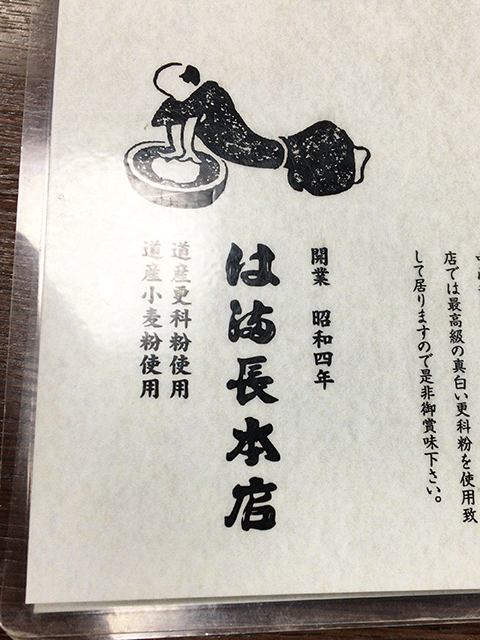 店では最高級の真白い更科粉を使用致
して居りますので是非御賞味下さい。
開業 昭和四年
はま長本店
道産更科粉使用
道産小麦粉使用